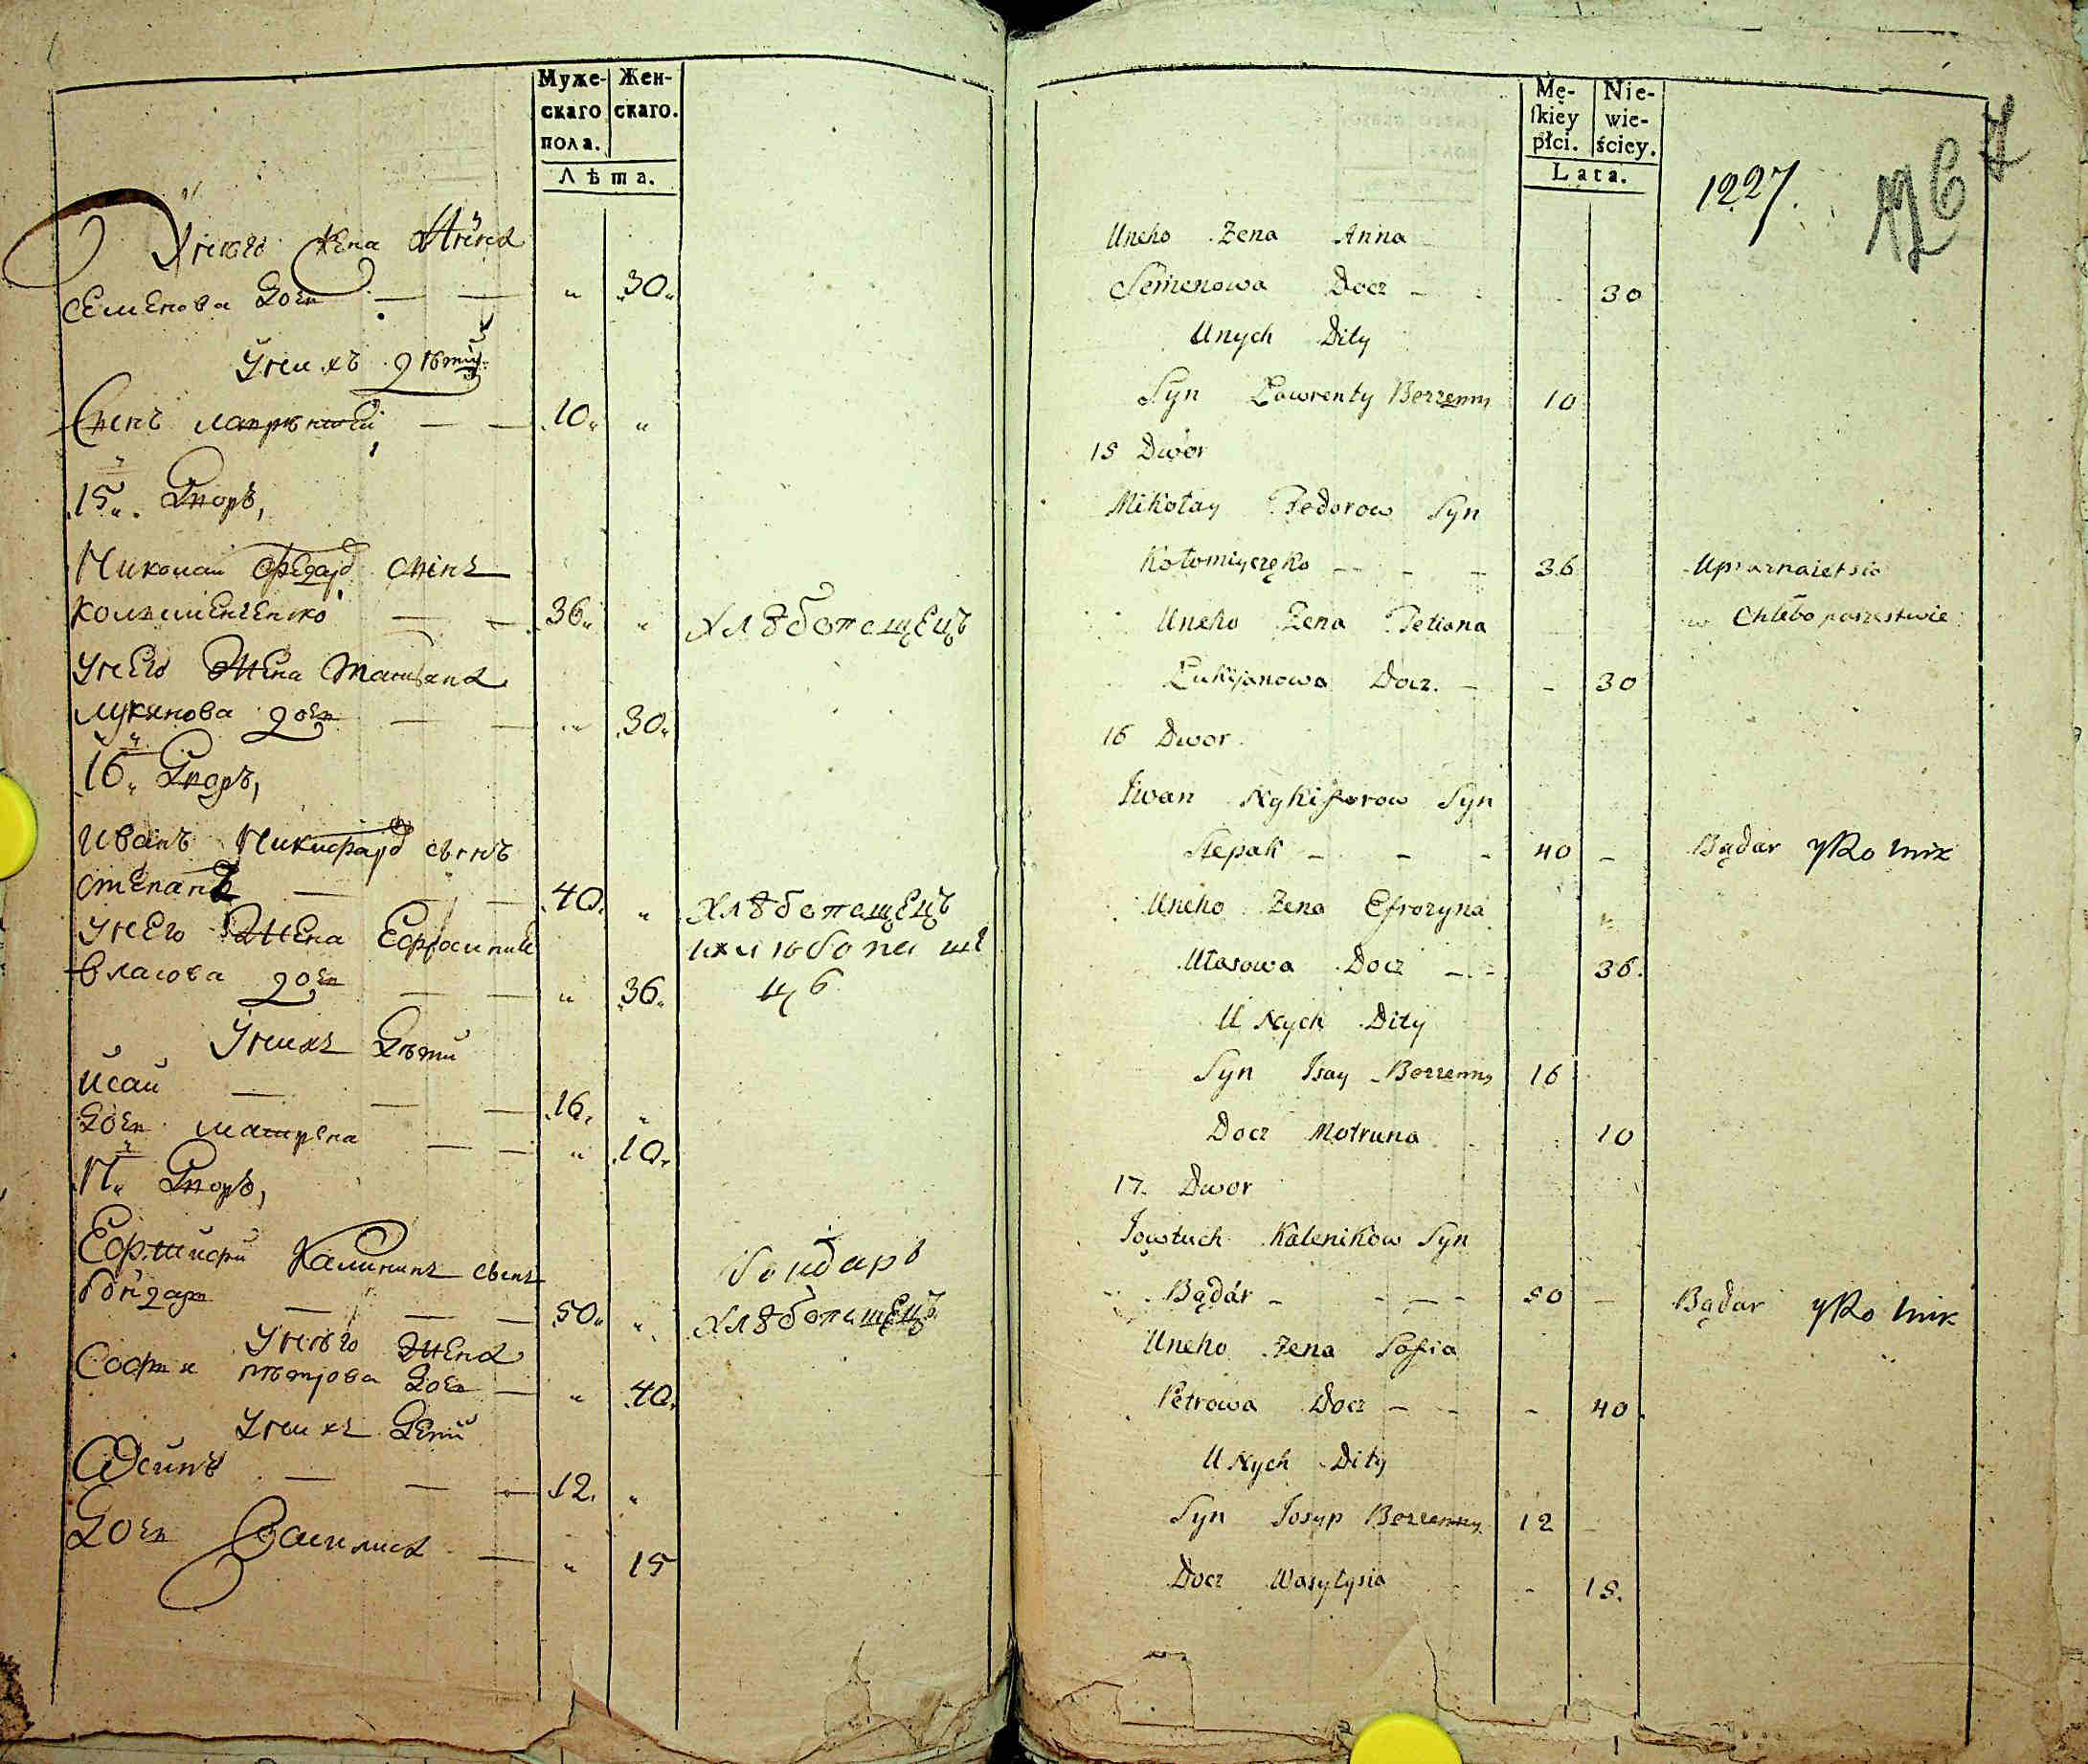 Муже-
скаго
пола.
Жен-
скаго.
Лѣта.
Унего Жена Анна
Семенова Дочь — — „ 30„
Унихъ Дѣти
Сынъ Лаврѣнтий — — 10„ „
15„ Дворъ,
Николаи Федоровъ Сынъ
Коломѣнченко — — 36„ „ Хлѣбопашецъ
Унего Жена Татиана
Лукянова дочь — — „ 30„
16„ Дворъ,
Иванъ Никифоровъ сынъ
Степанъ — — — 40„ „ Хлѣбопашецъ
Унего Жена Ефросиния
Власова дочь — — „ 36„
Унихъ Дѣти
Исаи — — — 16„ „
Дочь матрена — — „ 10„
17„ Дворъ,
Калининъ сынъ бондарь
бондарь — — — 50„ „ Хлѣбопашецъ
Унего Жена
София петрова Дочь — „ 40„
Унихъ Дети
Осипъ — — — 12„ „
Дочь Василиса — „ 15
Mę-
ſkiey
płci.
Nie-
wie-
ściey.
Lata.
1227.
Uneho Żena Anna
Semenowa Docz — 30
Unych Dity
Syn Ławrenty Bezzenny 10
15 Dwor
Mikołay Fedorow Syn
Kołomiyczęko — — — 36 Uprarnaietsia
Uneho Żena Tetiana w Chlebopaszestwie
Łukijanowa Docz. — - 30
16 Dwor
Iwan Nykiforow Syn
Stepak — — — 40 — Bądar y Rolnik
Uneho Zena Efrozyna
Ułasowa Docz — — 36.
U Nych Dity
Syn Isay Bezzenny 16
Docz Motruna 10
17. Dwor
Jowtuch Kalenikow Syn
Bądár — — — — 50 — Bądar y Rolnik
Uneho Zena Sofia
Petrowa Docz — — - 40
U Nych Dity
Syn Iosyp Bezzenny 12
Docz Wasyłysia - 15.